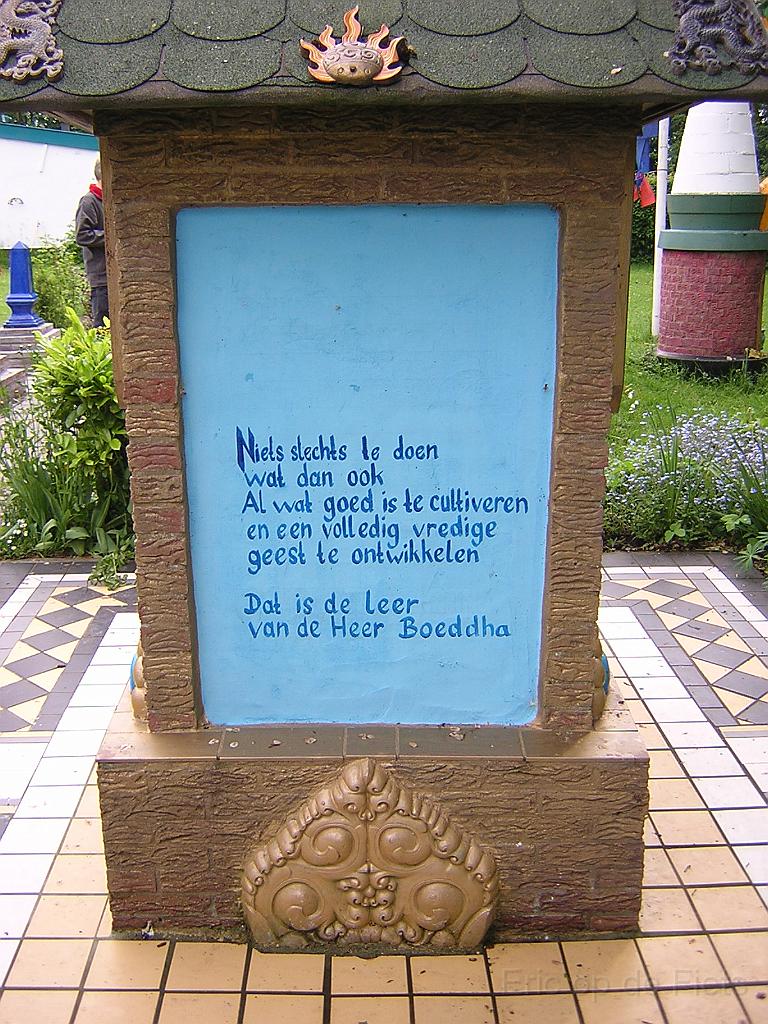 Niets slechts te doen
wat dan ook
Al wat goed is te cultiveren
en een volledig vredige
geest te ontwikkelen
Dat is de leer
van de Heer Boeddha
Eric op de Fiets